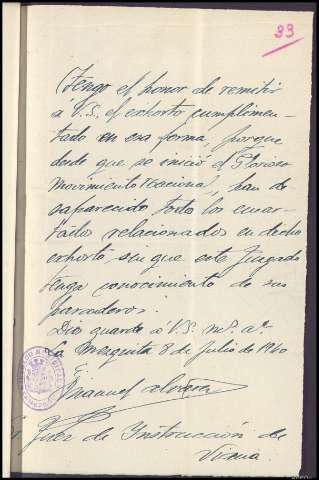 33
Tengo el honor de remitir
á V.S. el exhorto cumplimen-
tado en esa forma, porque
desde que se inició el Glorioso
Movimiento Nacional, han de-
saparecido todos los encar-
tados relacionados en dicho
exhorto, sin que este Juzgado
tenga conocimiento de sus
paraderos.
Dios guarde á V.S. ms. as.
La Mezquita 8 de Julio de 1940
Manuel
Juez de Instrucción de
Viana